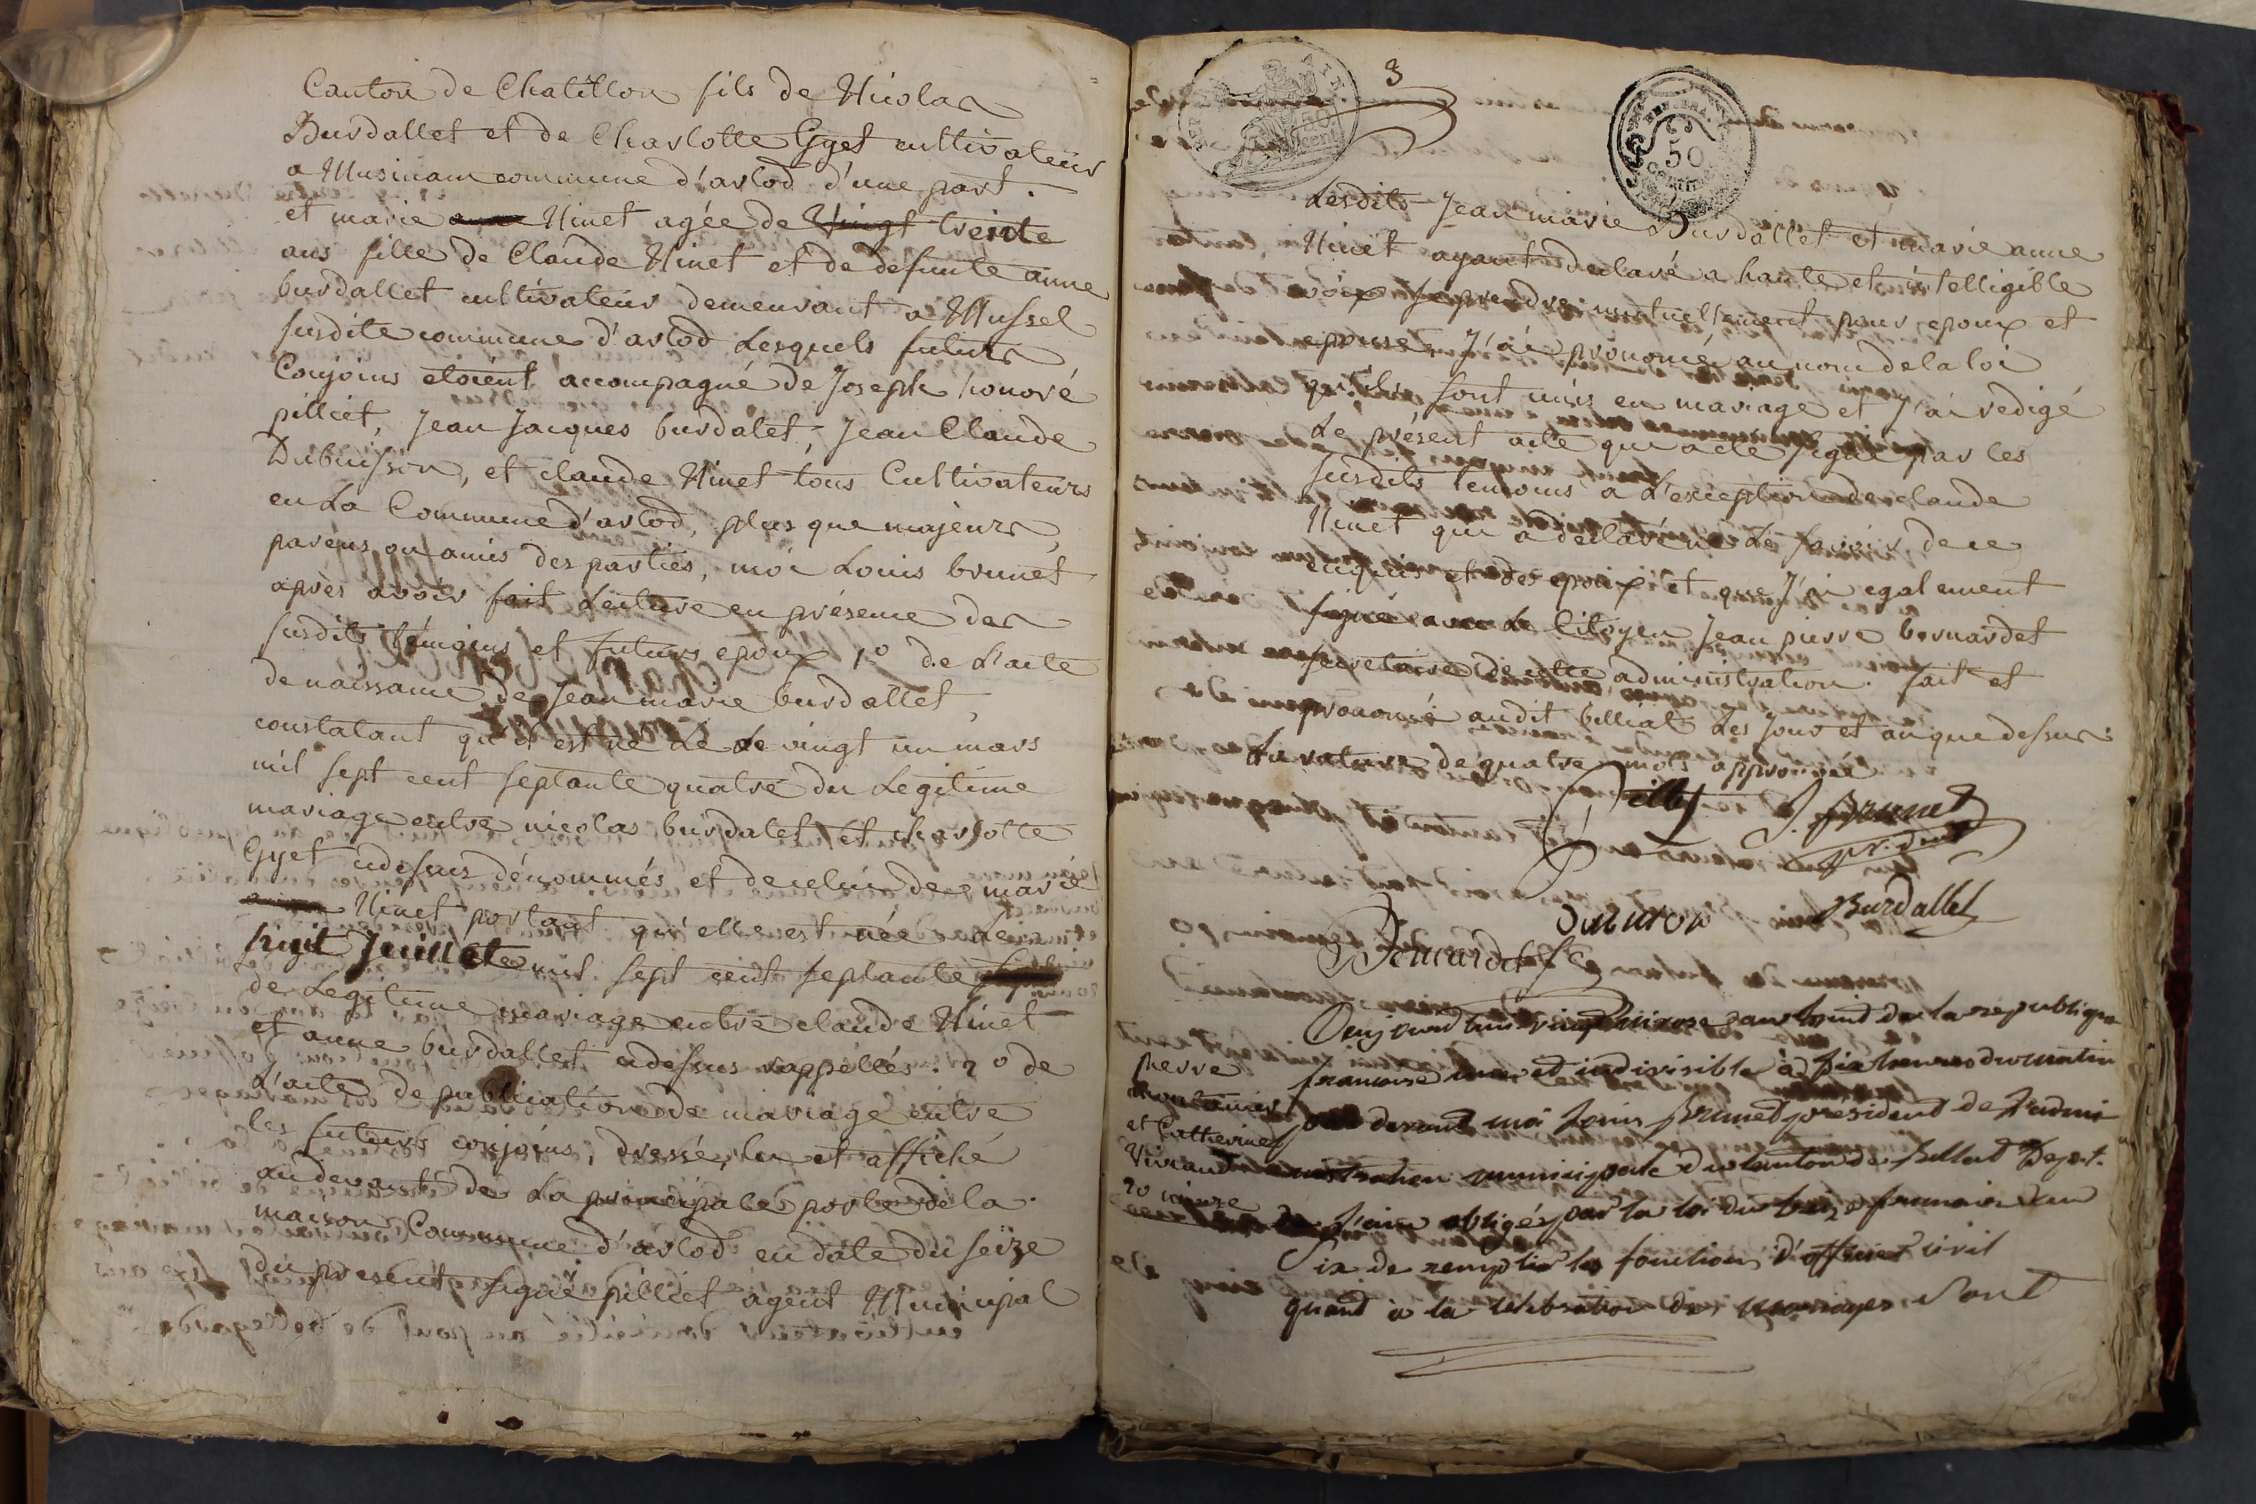 Canton de Chatillon fils de Nicolas
Burdallet et de Charlotte Gyet cultivateurs
a Musinam commune d'arlod d'une part.
et marie Ninet agée de vingt treinte
ans fille de Claude Ninet et de defunte anne
burdallet cultivateurs demeurant a Mussel
susdite commune d'arlod Lesquels futurs
Conjoins etoient accompagné de Joseph honoré
pilliet, Jean Jacques burdalet, Jean Claude
Dubuisson, et claude Ninet tous Cultivateurs
en La Commune d'arlod, plus que majeurs,
parens ou amis des parties, moi Louis brunet
après avoir fait Lecture en présence des
susdits témoins et futurs epoux 1o de L'acte
de naissance de Jean marie burdallet,
constatant qu'il est né Le Le vingt un mars
mil sept cent septante quatre du Legitime
mariage entre nicolas burdalet et charlotte
Gyet cidessus dénommés et de celui de marie
Ninet portant qu'elle est née le
huit Juillet mil sept cent septante
de Legitime mariage entre claude Ninet
et anne burdallet cidessus rappellés. 2o de
L'acte de publication de mariage entre
les futurs conjoins, dressé, lu et affiché
au devant de La principale porte de la
maison Commune d'arlod en date du seize
du présent signé pilliet agent Municipal
3
50
Lesdits Jean marie Burdallet et marie anne
Ninet ayant declaré a haute et intelligible
voix se prendre mutuellement pour epoux et
epouse J'ai prononcé au nom de la loi
qu'ils sont unis en mariage et J'ai redigé
Le présent acte que a eté signé par les
susdits temoins a L'exception de claude
Ninet qui a declaré ne Le savoir de ce
enquis et des epoux et que J'ai egalement
signé avec Le Citoyen Jean pierre bernardet
secretaire de cette administration. fait et
prononcé audit billiat Les jour et an que dessus
La rature de quatre mots approuvée
L. Brunet
prdent
Burdallet
Bernardet
Pierre
et Catherine
20 nivose
Aujourd'hui vingt nivose an huit de la republique
francaise une et indivisible à dix heures du matin
par devant moi Louis Brunet président de l'admi
nistration municipale du Canton de Billiat Depart.
de l'ain obligé par la loi du frimaire an
Six de remplir les fonctions d'officier civil
quant à la celebration des mariages sont